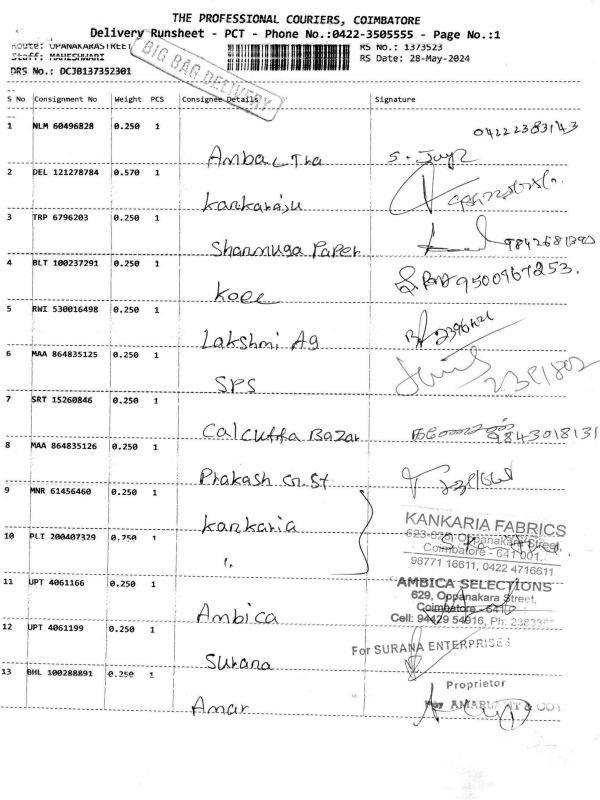 THE PROFESSIONAL COURIERS, COIMBATORE
Delivery Runsheet - PCT - Phone No.:0422-3505555 - Page No.:1
Route: OPANAKARASTREET
RS No.: 1373523
Staff: MAHESHWARI
RS Date: 28-May-2024
DRS No.: DCJB137352301
BIG BAG DELIVERY
S No Consignment No Weight PCS Consignee Details Signature
1 NLM 60496828 0.250 1
Ambal Tra 04222383143
2 DEL 121278784 0.570 1
Kankaraju
3 TRP 6796203 0.250 1
Shanmuga Paper
4 BLT 100237291 0.250 1
9500967253.
5 RWI 530016498 0.250 1
Lakshmi Ag
6 MAA 864835125 0.250 1
SPS
7 SRT 15260846 0.250 1
Calcutta Bazar 9843018131
8 MAA 864835126 0.250 1
Prakash Gn. St
9 MNR 61456460 0.250 1
Kankaria
KANKARIA FABRICS
623-625, Oppanakara Street,
10 PLI 200407329 0.250 1
Coimbatore - 641 001.
98771 16611, 0422 4716611
11 UPT 4061166 0.250 1
Ambica
AMBICA SELECTIONS
629, Oppanakara Street,
Coimbatore - 641
Cell: 94429 54916, Ph:
12 UPT 4061199 0.250 1
Surana
For SURANA ENTERPRISES
13 BHL 100288891 0.250 1
Proprietor
Amar